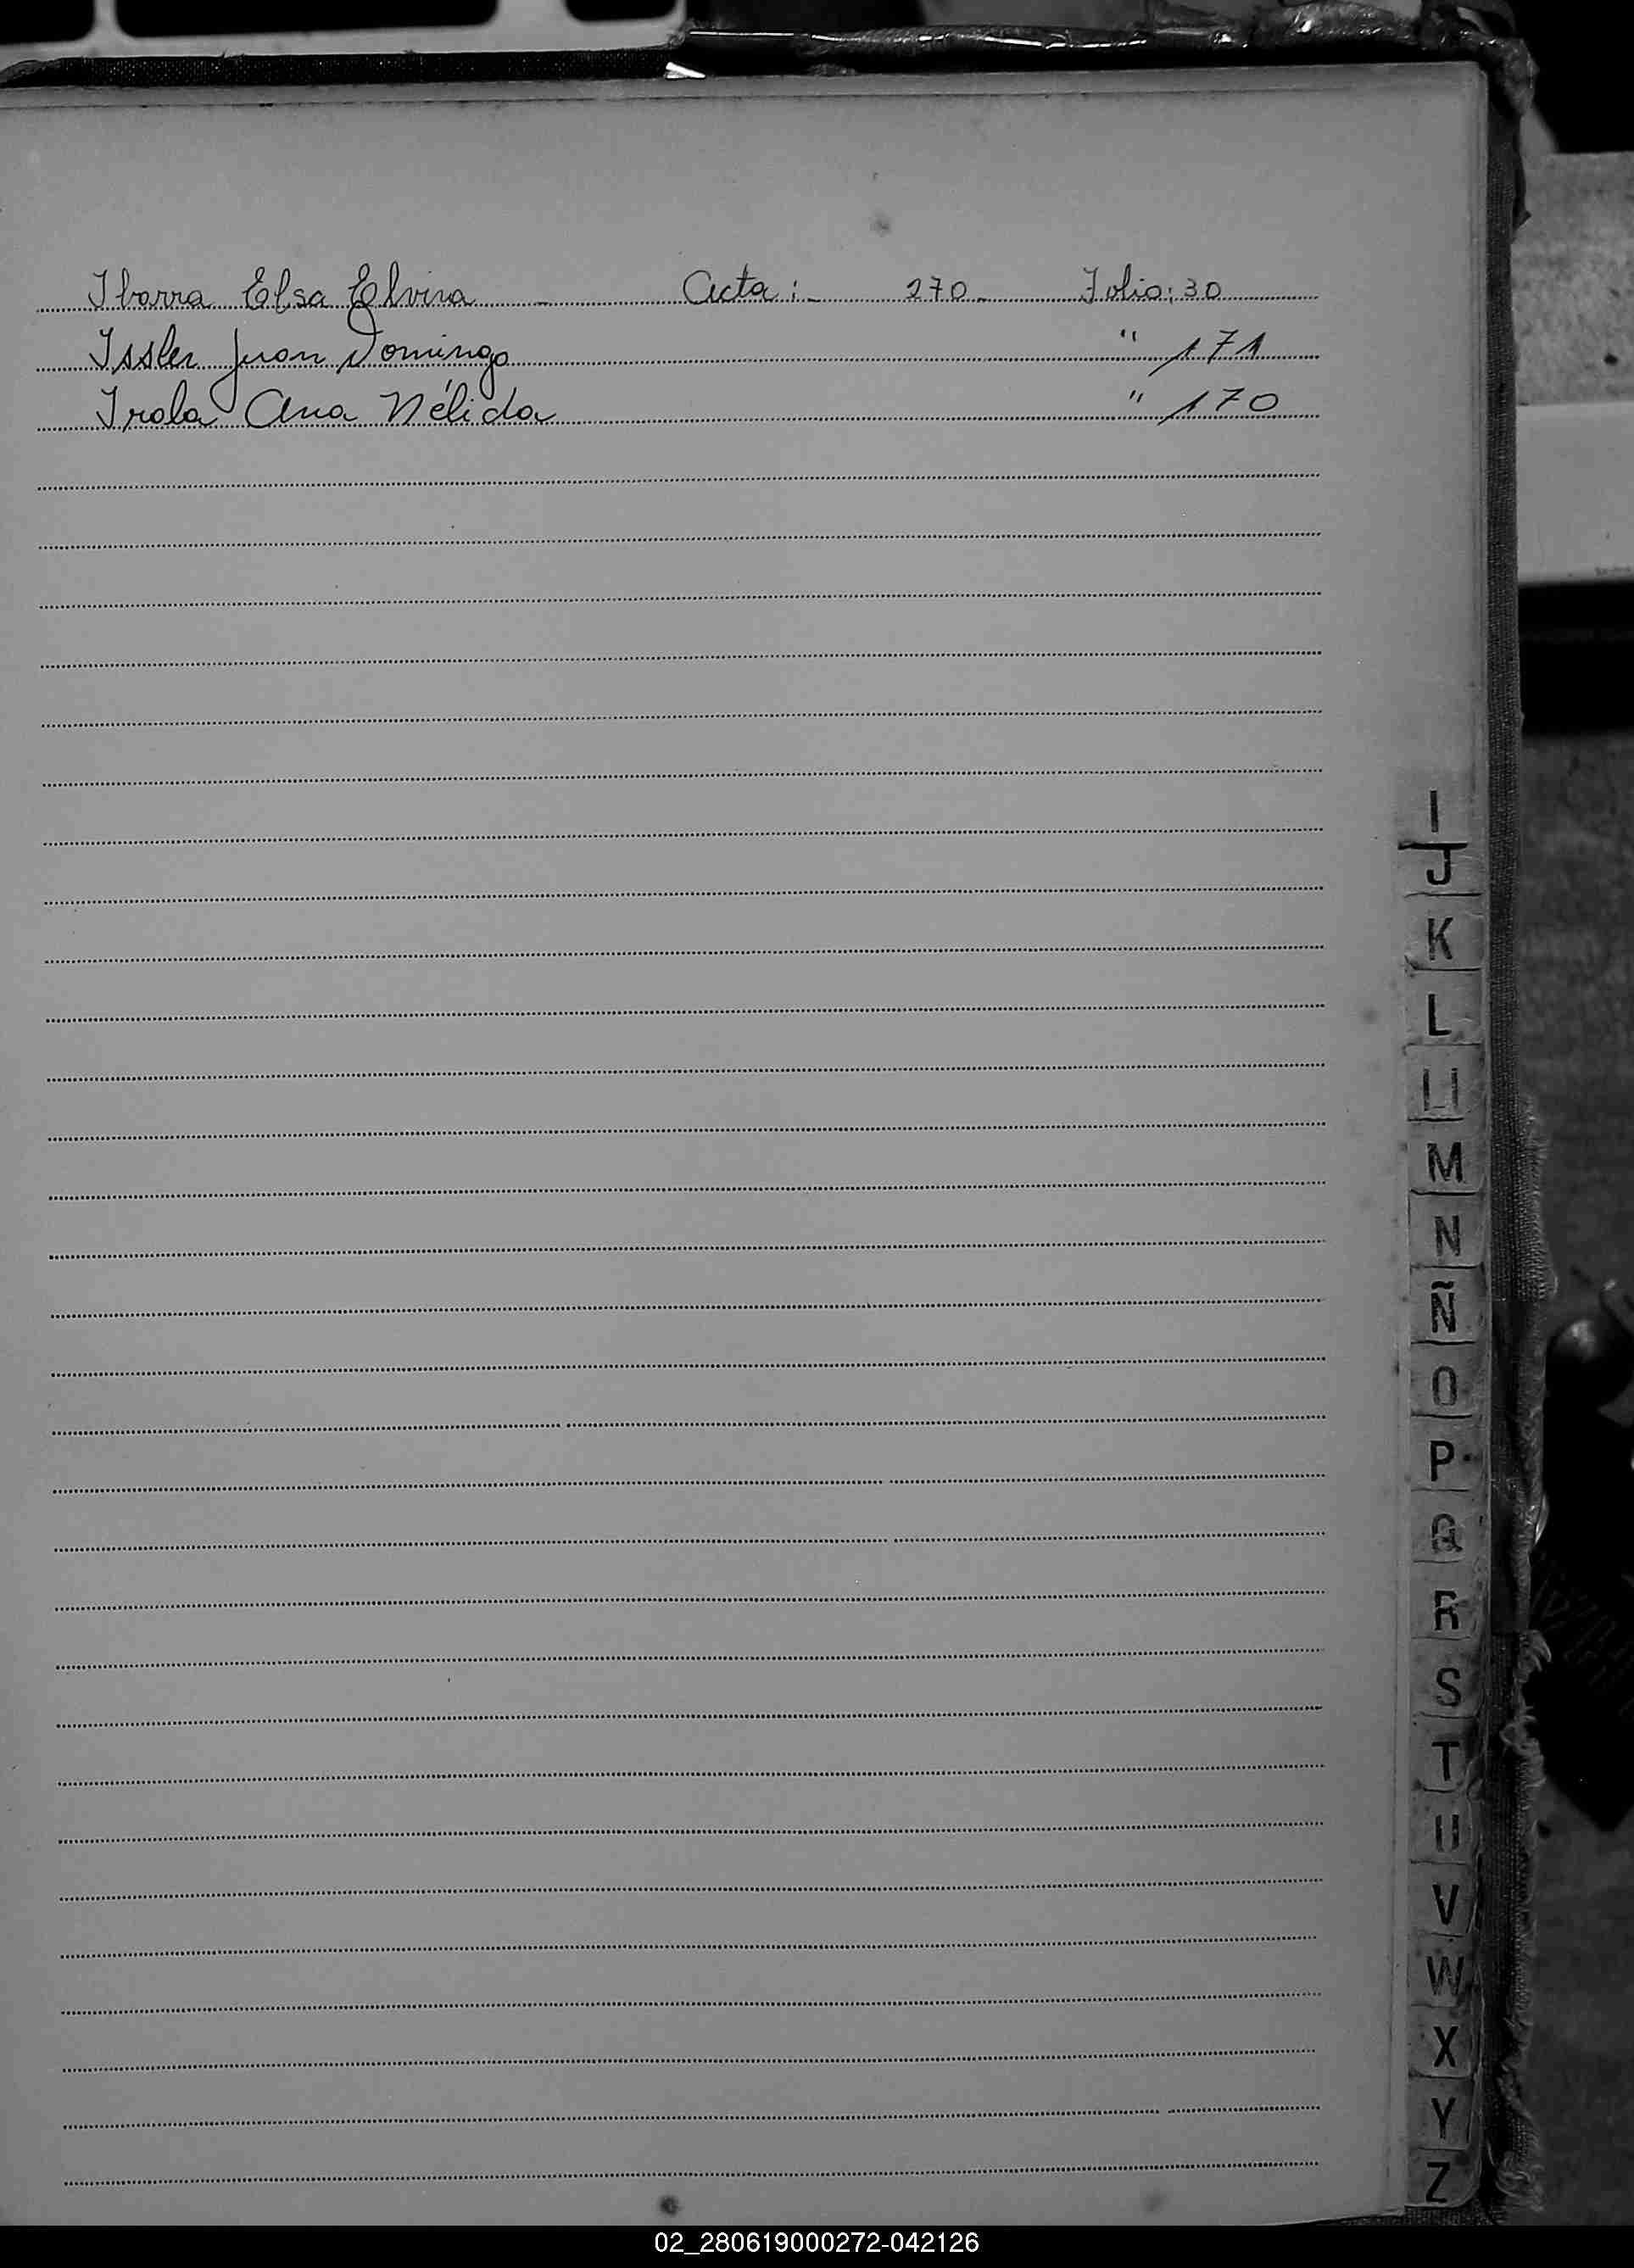 Ibarra Elsa Elvira - Acta:- 270- Folio: 30
Issler Juan Domingo " 171
Irala Ana Nélida " 170
I
J
K
L
Ll
M
N
Ñ
O
P
Q
R
S
T
U
V
W
X
Y
Z
02_280619000272-042126